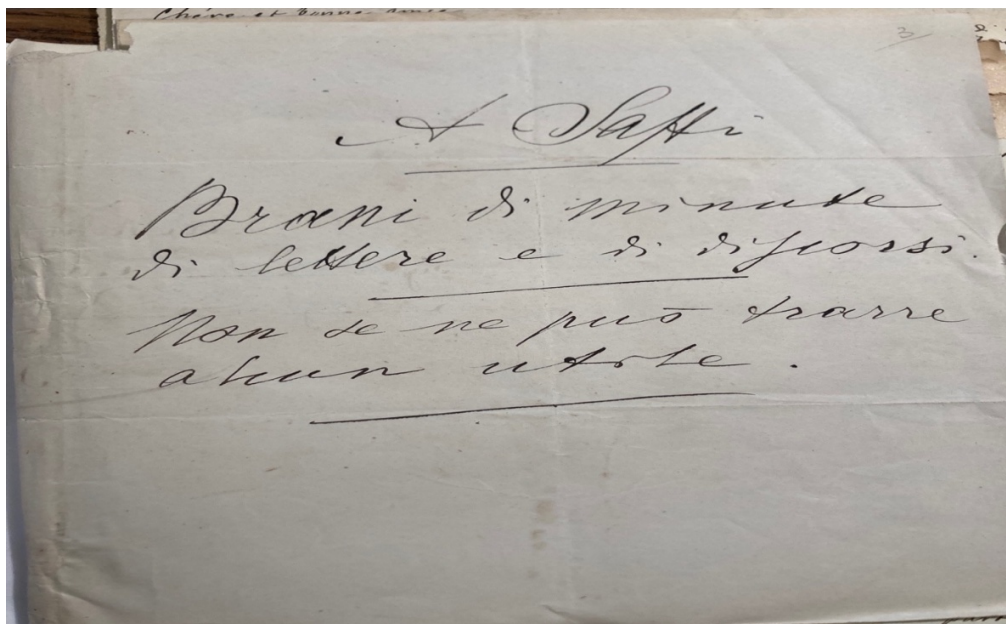 Chère et bonne amie
3
A Saffi
Brani di minute
di lettere e di discorsi.
Non se ne può trarre
alcun utile.